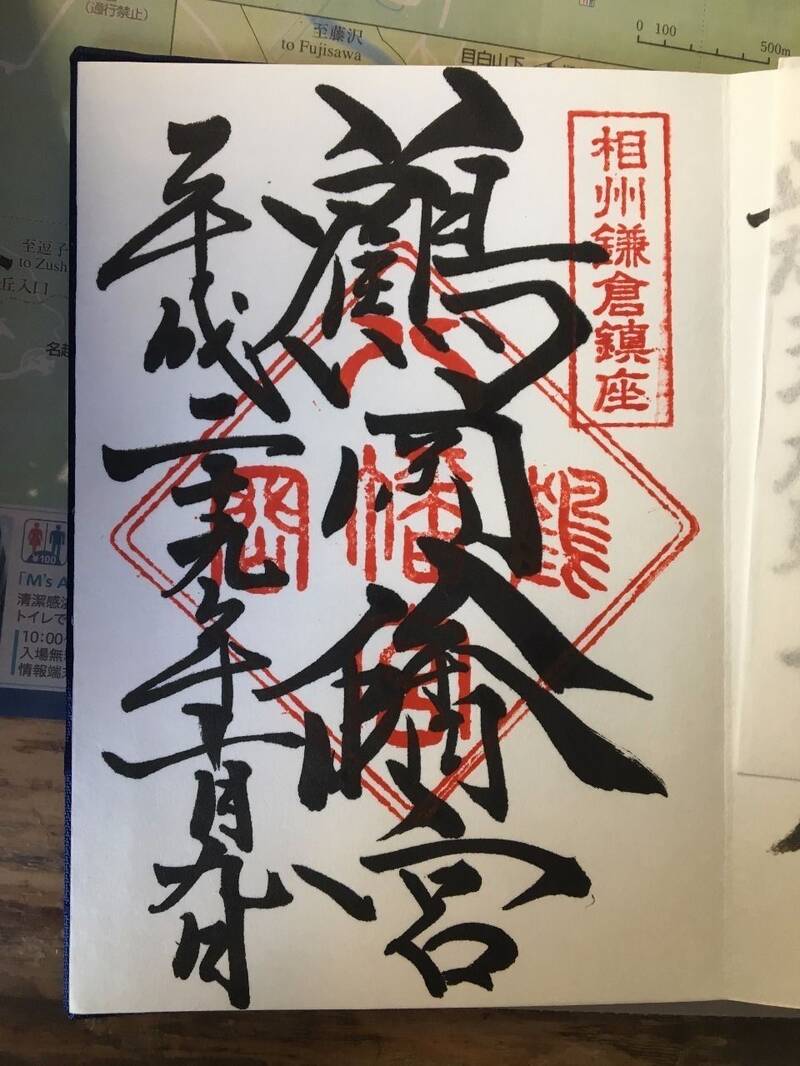 (通行禁止)
至藤沢
to Fujisawa
目白山下
0 100
500m
相州鎌倉鎮座
鶴岡八幡宮
平成二十九年十一月九日
八
鶴幡岡
宮
至逗子
to Zush
丘入口
名越
¥100
「M's A
清潔感
トイレで
10:00
入場無
情報端